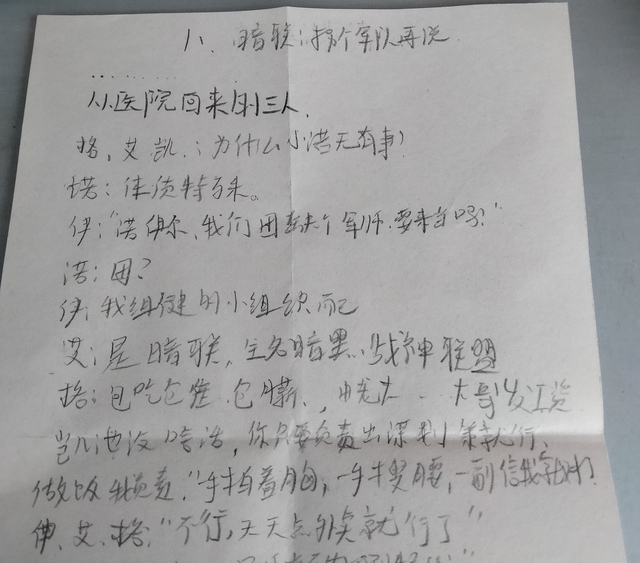 八、暗联：拐个军队再说
………
从医院回来的三人，
格，艾，凯：为什么小洛无事？
塔：体质特殊。
伊："洛伊尔、我们团缺个军师，要来当吗？"
洛：团？
伊：我组建的小组织而已
艾：是暗联，全名暗黑战神联盟
格：包吃包住，包薪，大哥发工资
凯：他没啥活，你只要负责出谋划策就行、
做饭我负责。"手拍着胸，一手叉腰，一副信我
伊、艾、格："不行，天天点外卖就行了"